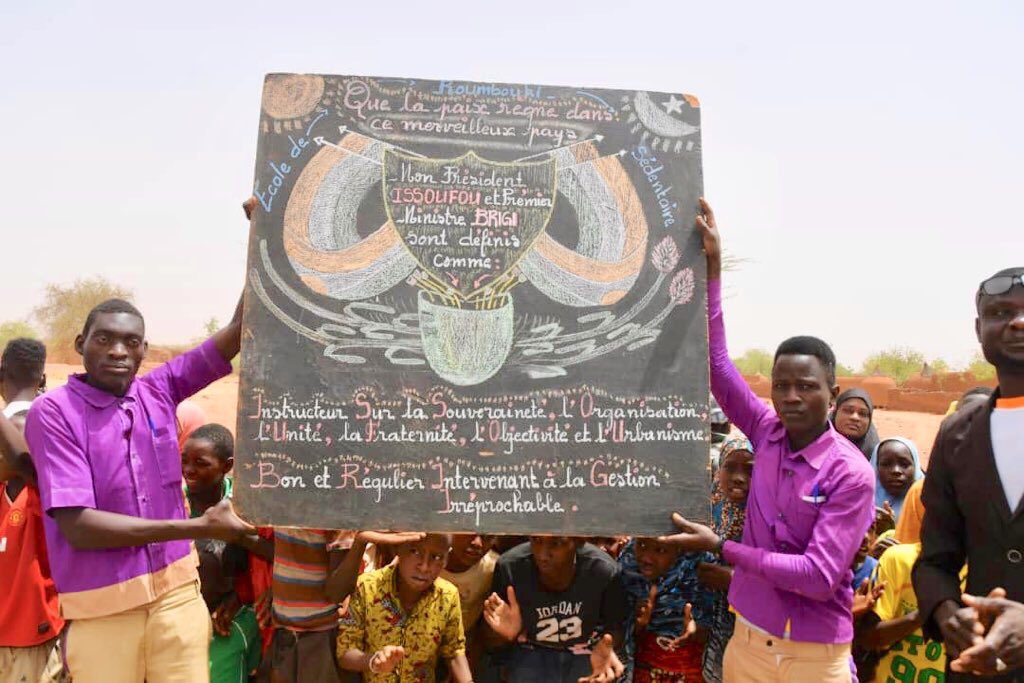 Roumbouki
Que la paix règne dans
ce merveilleux pays
École de
Sédentaire
Mon Président
ISSOUFOU et Prémier
Ministre BRIGI
sont définis
Comme:
Instructeur Sur la Souveraineté, l'Organisation,
l'Unité, la Fraternité, l'Objectivité et l'Urbanisme
Bon et Régulier Intervenant à la Gestion
Irréprochable.
JORDAN
23
90